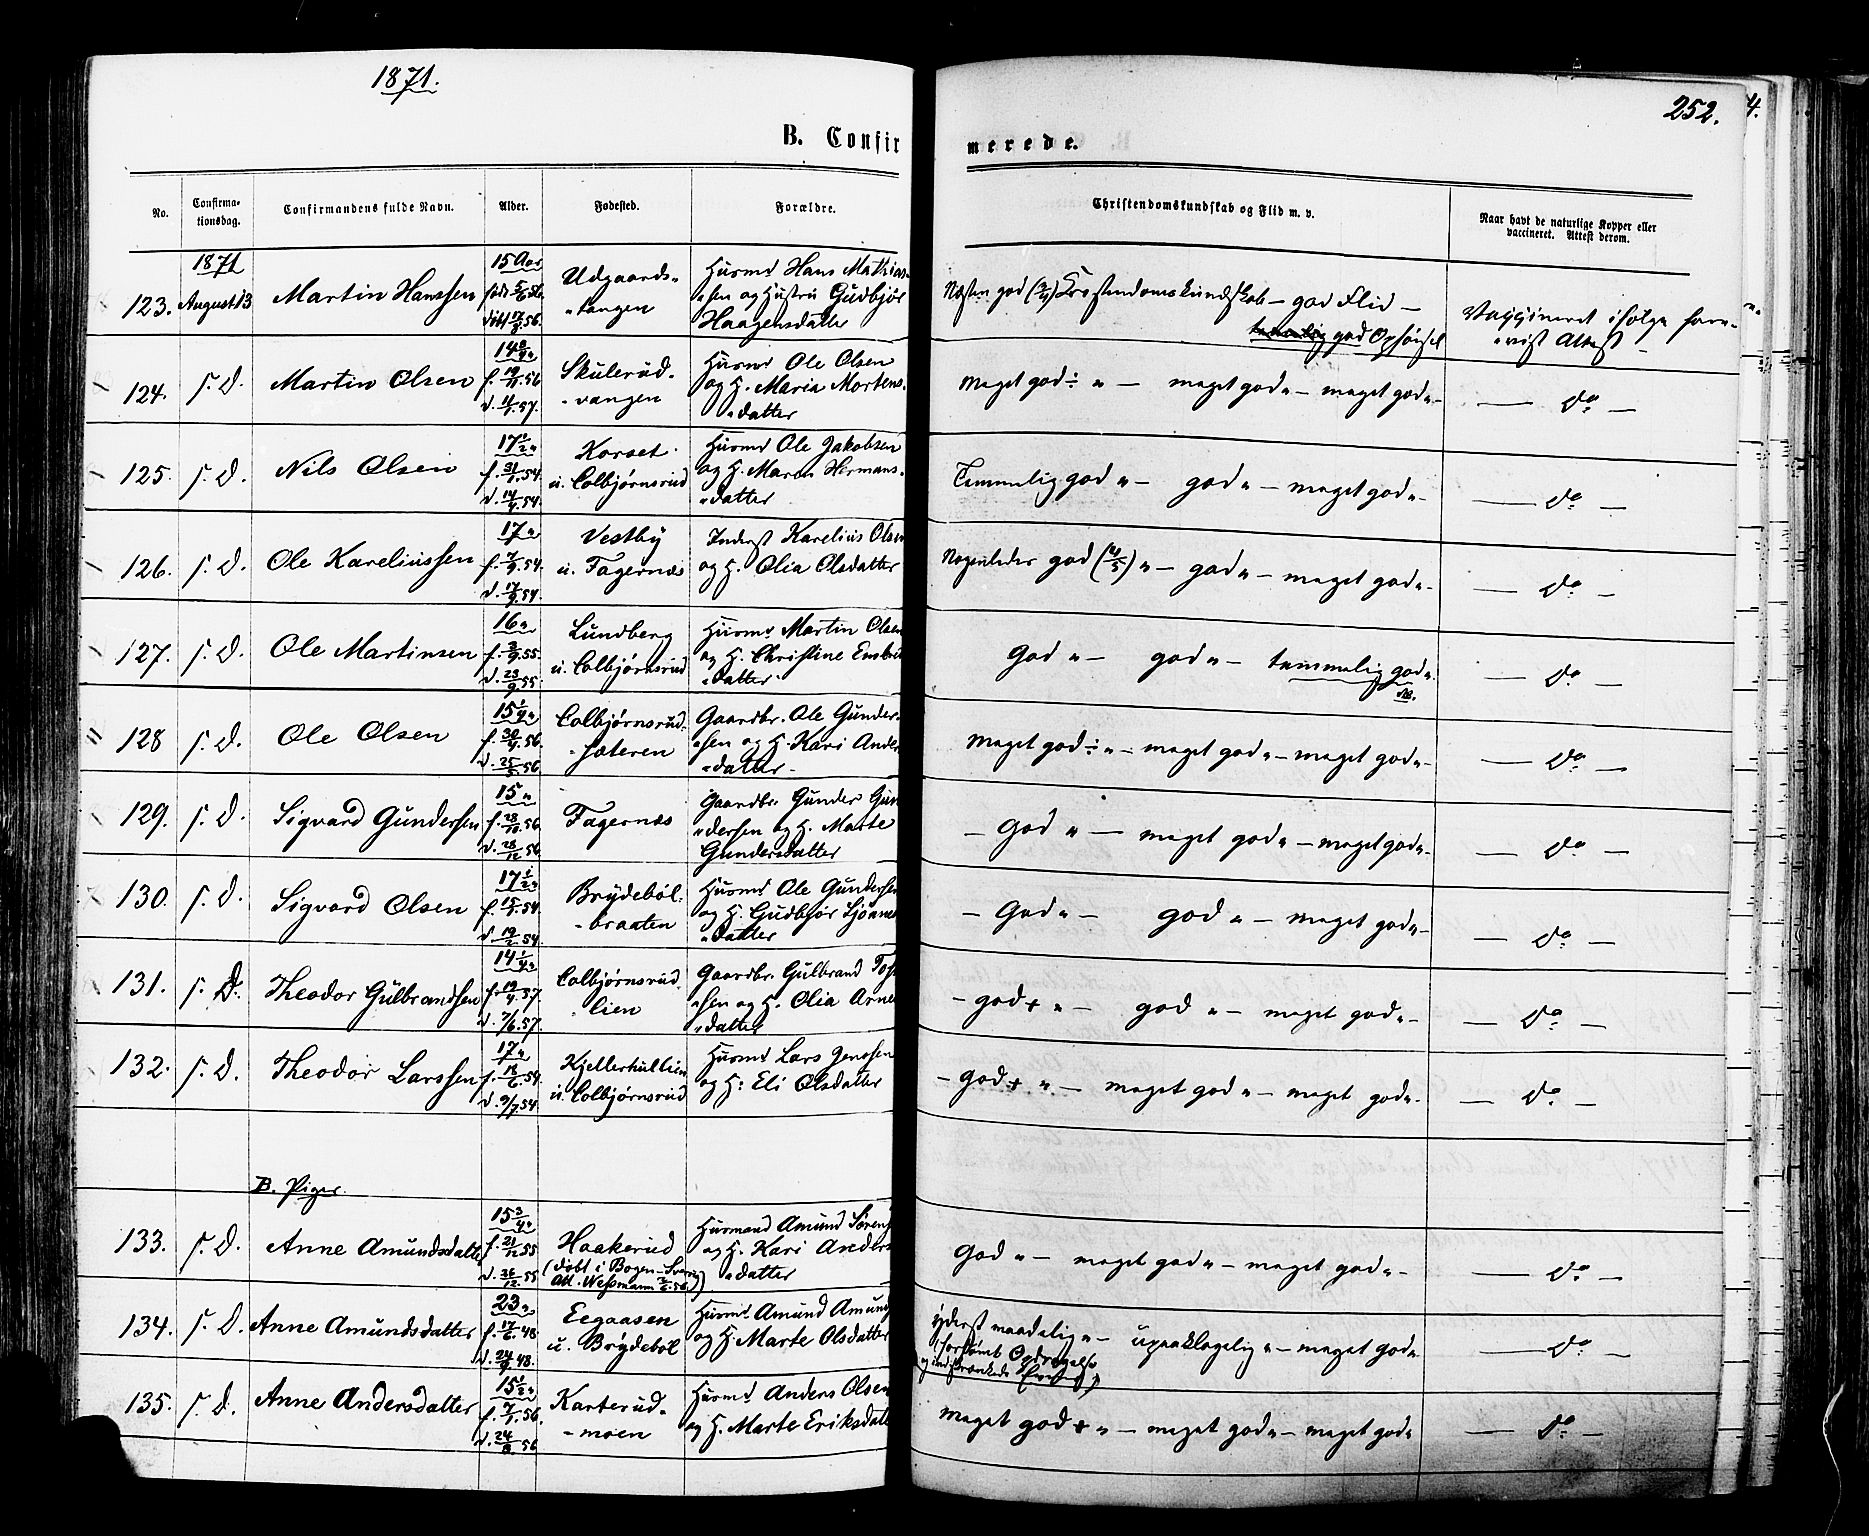 1871.
252.
4.
B. Confir
merede.
No.
Confirma-
tionsdag.
Confirmandens fulde Navn.
Alder.
Fødested.
Forældre.
Christendomskundskab og Flid m. v.
Naar havt de naturlige Kopper eller
vaccineret. Attest derom.
1871
123. August 13 Martin Hanssen
15 Aar
født 5/6 56.
døbt 17/8 56.
Udgaards-
-tangen
Husmd Hans Mathias-
-sen og Hustru Gudbjør
Haagensdatter
Næsten god (3/4) Cristendomskundskab – god Flid –
god Opførsel
Vaccineret ifølge fore-
-vist Attest
124. s. D. Martin Olsen
14 3/4 a
f. 19/11 56
d. 11/1 57.
Skulerud-
-vangen
Husmd Ole Olsen
og H. Maria Mortens-
-datter
Meget god ÷ " – meget god " – meget god " –
– do –
125. s. D. Nils Olsen
17 1/2 a
f. 31/1 54.
d. 14/4 54.
Korset
u. Colbjørnsrud
Husmd Ole Jakobsen
og H. Maren Hermans-
-datter
Temmelig god " – god " – meget god " –
– do –
126. s. D. Ole Kareliussen
17 a
f. 7/9 54.
d. 17/9 54.
Vestby
u. Fagernæs
Inderst Karelius Olsen
og H. Olia Olsdatter
Nogenledes god (4/5) " – god " – meget god " –
– do –
127. s. D. Ole Martinsen
16 a
f. 2/9 55.
d. 23/9 55.
Lundberg
u. Colbjørnsrud
Husmd Martin Olsen
og H. Christine
-datter
God " – god " – temmelig god "
– do –
128 s. D. Ole Olsen
15 1/4 a
f. 30/4 56.
d. 25/5 56
Colbjørnsrud-
-sæteren
Gaardbr. Ole Gunder-
-sen og H. Kari Anders
-datter
Meget god ÷ " – meget god " – meget god " –
– do –
129. s. D. Sigvard Gundersen
15 a
f. 23/10 56.
d. 28/12 56
Fagernæs
Gaardbr. Gunder Gun
-dersen og H. Marte
Gundersdatter
– God " – meget god " – meget god " –
– do –
130. s. D. Sigvard Olsen
17 1/2 a
f. 15/1 54.
d. 19/2 54
Brydeböl-
-braaten
Husmd Ole Gundersen
og H. Gudbjør
-datter
– God " – god " – meget god " –
– do –
131. s. D. Theodor Gulbrandsen
14 1/4 a
f. 19/4 57.
d. 7/6 57
Colbjørnsrud-
lien
Gaardbr. Gulbrand
-sen og H. Olia Arne
-datter
– god + " – god " – meget god " –
– do –
132. s. D. Theodor Larssen
17 a
f. 18/6 54.
d. 9/7 54
Kjellerhultlien
u. Colbjørnsrud
Husmd Lars Jenssen
og H: Eli Olsdatter
– god + " – meget god " – meget god " –
– do –
B. Piger.
133. s. D. Anne Amundsdatter
15 3/4 a
f. 21/12 55
d. 26/12 55
Haakerud
(døbt i Bogen – Sverig
Att. Nessmann 2/6 56.)
Husmand Amund Sørens
og H. Kari Anders
-datter
God " – meget god " – meget god " –
– do –
134. s. D. Anne Amundsdatter
23 a
f. 17/6 48
d. 24/9 48.
Eegaasen
u. Brydeböl
Husmd Amund Amund
og H. Marte Olsdatter
yderst maadelig " – upaaklagelig " – meget god "
(forsømt Opdragelse
og indskrænkede Evner)
– do –
135. s. D. Anne Andersdatter
15 1/2 a
f. 7/1 56.
d. 24/3 56
Karterud-
-moen
Husmd Anders Olsen
og H. Marte Eriksdatt
Meget god + " – meget god " – meget god "
– do –